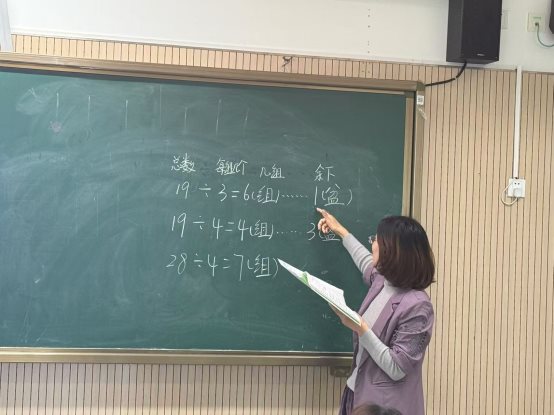 总数 每组个 几组 余下
19÷3=6(组)……1(盆)
19÷4=4(组)……3(盆
28÷4=7(组)